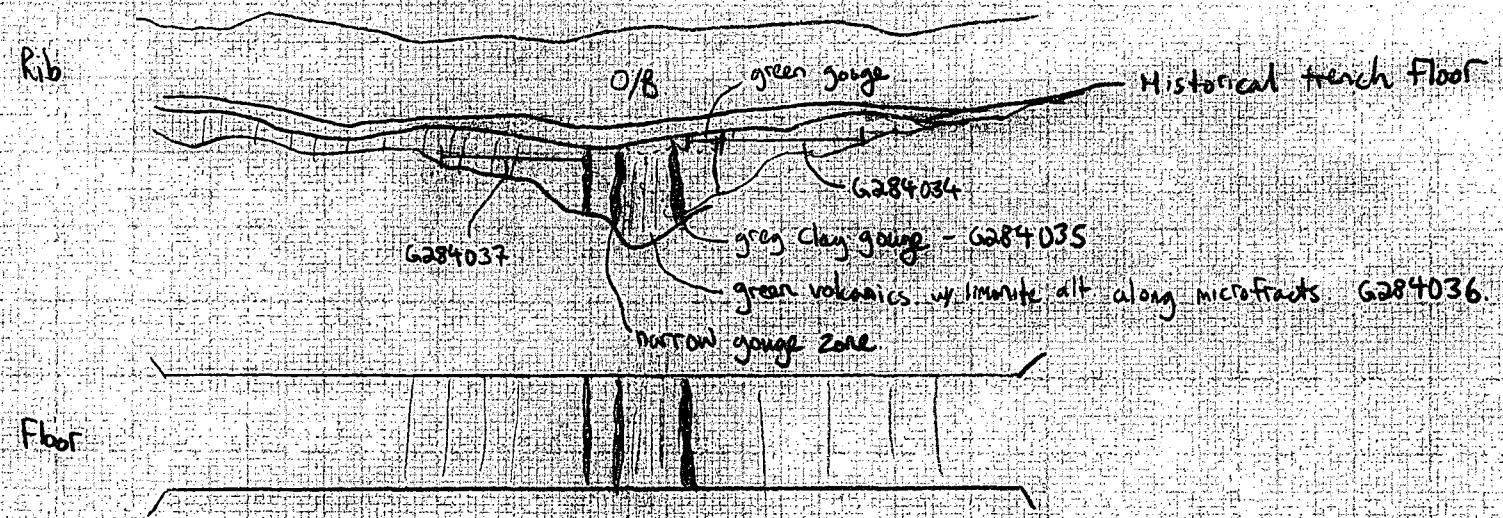 Rib
O/B
green gouge
Historical trench Floor
G284034
G284037
grey clay gouge - G284035
green volcanics w/ limonite alt along microfracts G284036.
narrow gouge zone
Floor